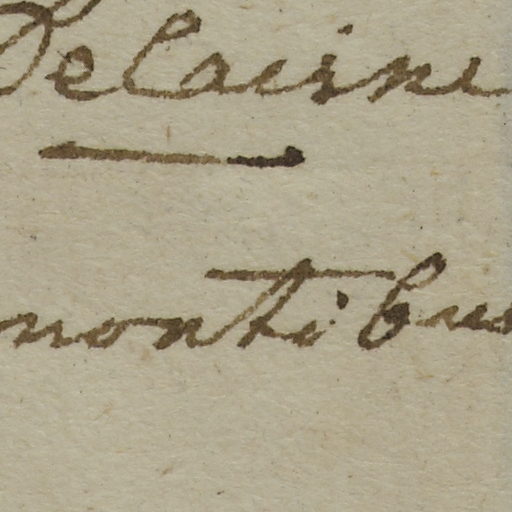 Delairne
montibus